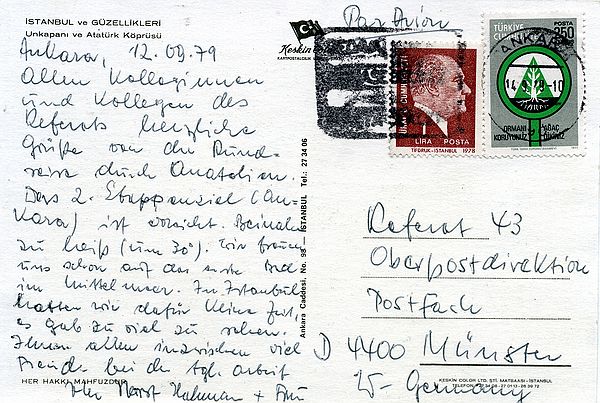 İSTANBUL ve GÜZELLİKLERİ
Unkapanı ve Atatürk Köprüsü
Ankara, 12.09.79
Allen Kolleginnen
und Kollegen des
Referats herzliche
Grüße von der Rund-
reise durch Anatolien.
Das 2. Etappenziel (An-
kara) ist erreicht. Beinahe
zu heiß (um 30°). Wir freuen
uns schon auf das erste Bad
im Mittelmeer. In Istanbul
hatten wir dafür keine Zeit,
es gab zu viel zu sehen.
Ihnen allen inzwischen viel
Freude bei der tgl. Arbeit
Ihr Horst + Frau
HER HAKKI MAHFUZDUR
Keskin
KARTPOSTALCILIK
Ankara Caddesi, No. 98 — İSTANBUL Tel.: 27 34 06
Par Avion
1
LİRA POSTA
TİFDRUK-İSTANBUL 1978
TÜRKİYE
POSTA
250
ANKARA
14.9.79-10
ORMANI
KORUYUNUZ
AĞAÇ
Referat 43
Oberpostdirektion
Postfach
D 4400 Münster
W-Germany
KESKİN COLOR LTD. ŞTİ. MATBAASI-İSTANBUL